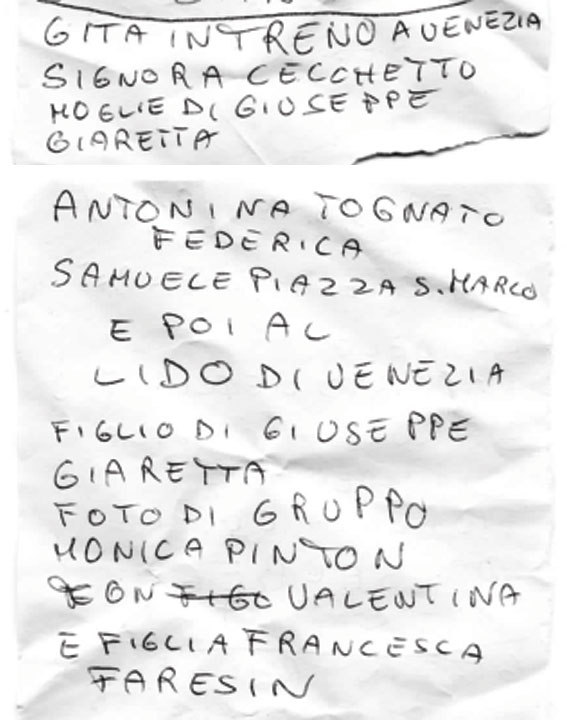 GITA IN TRENO A VENEZIA
SIGNORA CECCHETTO
MOGLIE DI GIUSEPPE
GIARETTA
ANTONINA TOGNATO
FEDERICA
SAMUELE PIAZZA S. MARCO
E POI AL
LIDO DI VENEZIA
FIGLIO DI GIUSEPPE
GIARETTA
FOTO DI GRUPPO
MONICA PINTON
CON FIGO VALENTINA
E FIGLIA FRANCESCA
FARESIN